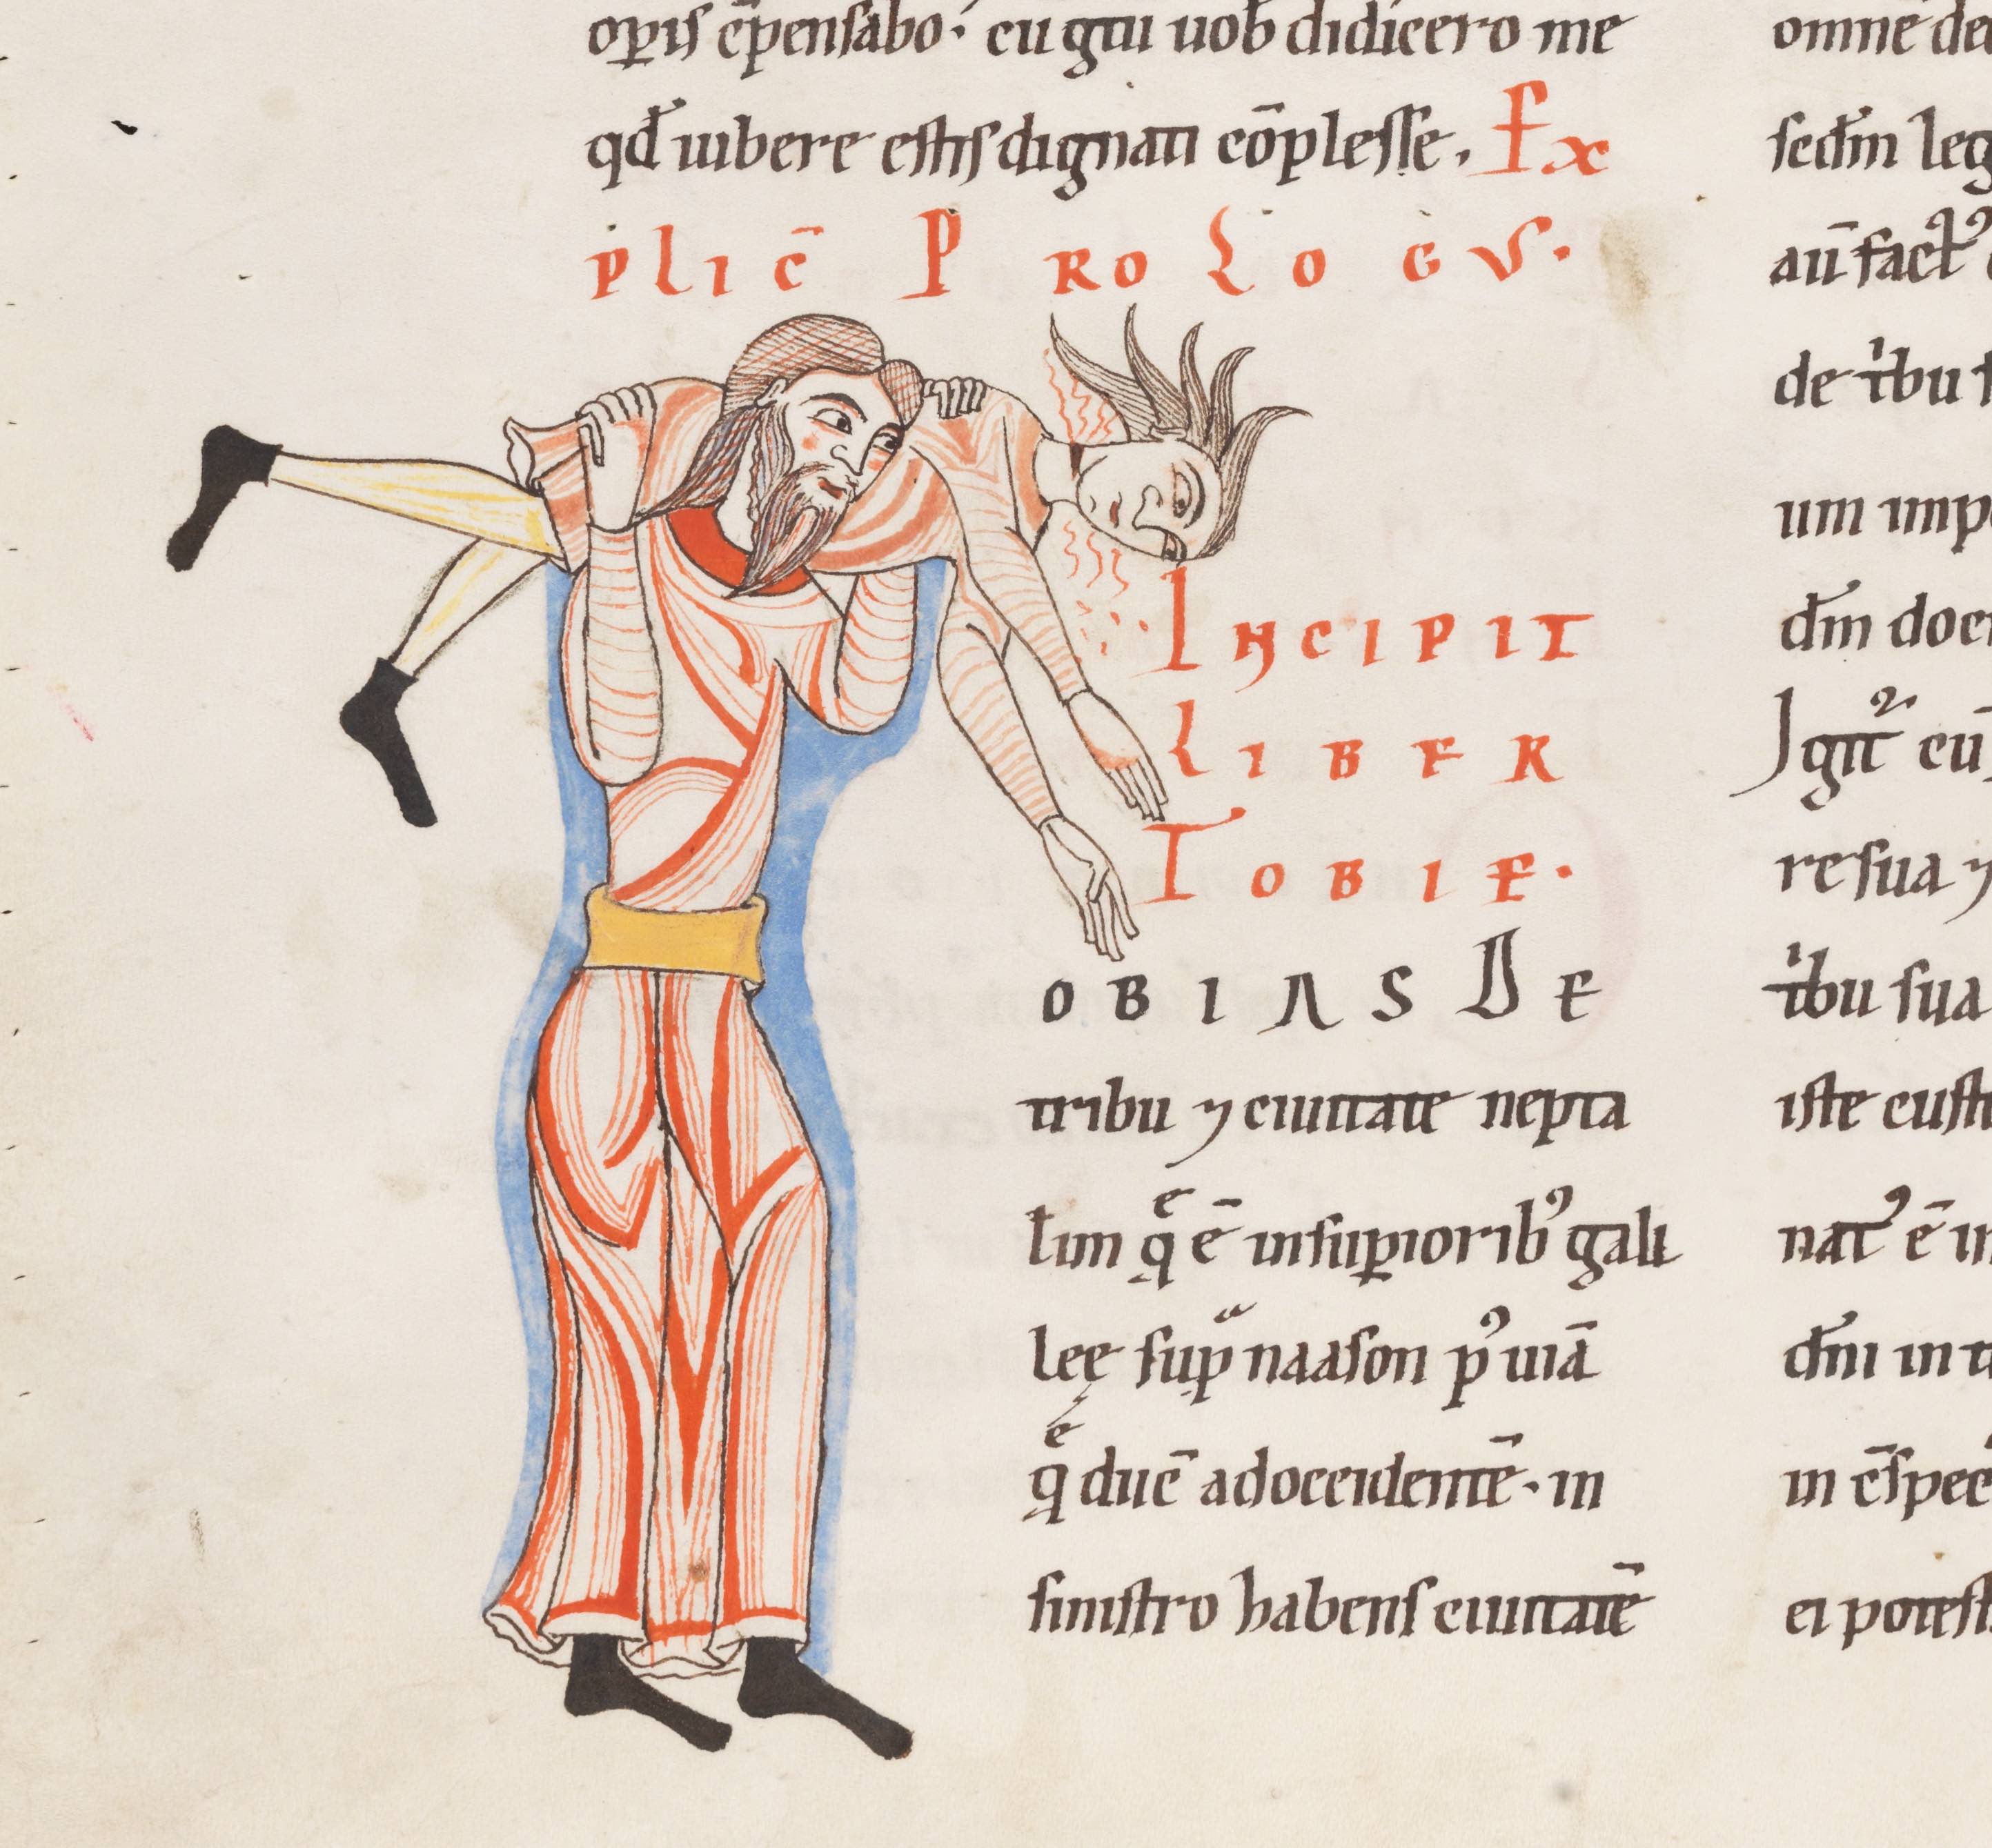 opis c̄pensabo· cu gtu uob didicero me
qđ iubere estis dignati cōplesse. Ex
plic̄ PROLOGVS·
INCIPIT
LIBER
TOBIE·
OBIAS DE
tribu ⁊ ciuitate nepta
lim que ē in superiorib' gali
leę supra naason p' uiā
que duc̄ ad occidentē· in
sinistro habens ciuitatē
omnē de
scđm leg
aū fact'
de tribu
um imp
dm̄ doce
Igit' cū
re sua ⁊
tribu sua
iste custo
nat' ē in
dn̄i in
in c̄spec
ei potest